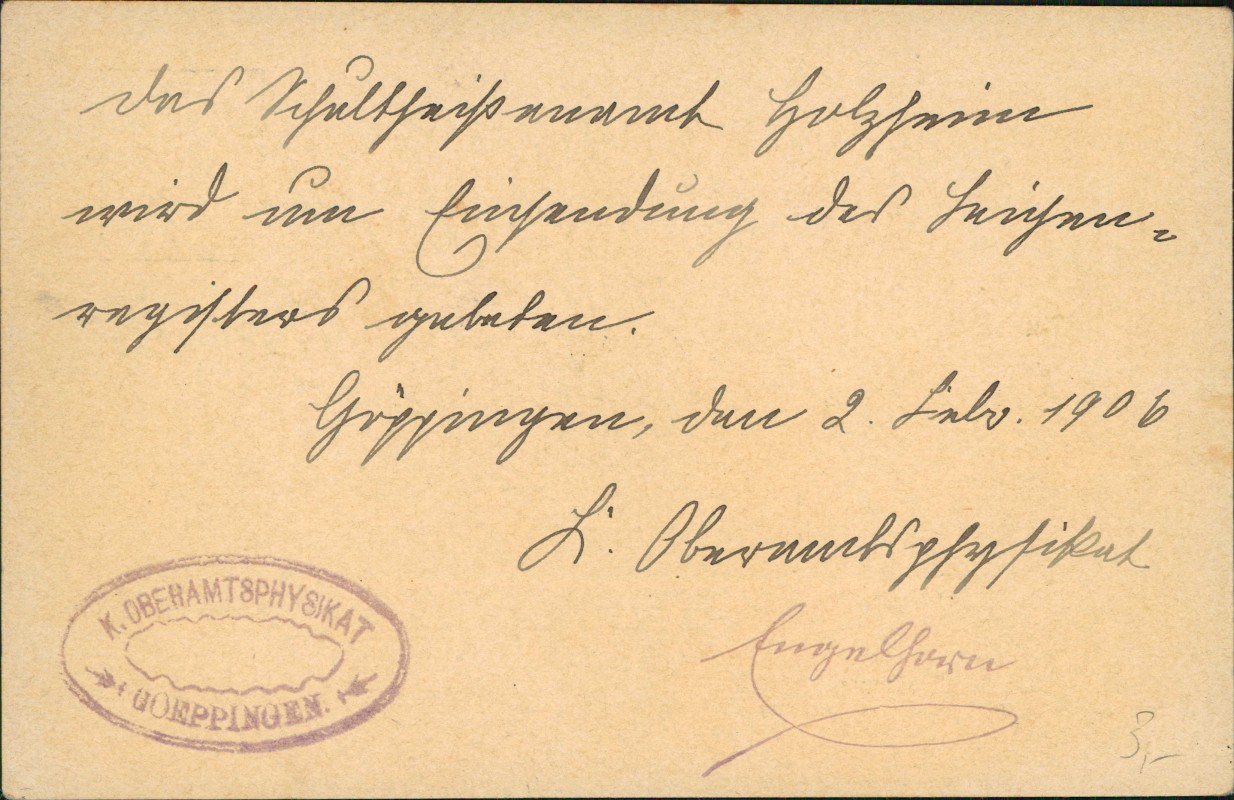 Das Schultheißenamt Holzheim
wird um Einsendung des Leichen-
registers gebeten.
Göppingen, den 2. Febr. 1906
K. Oberamtsphysikat
Engelhorn
K. OBERAMTSPHYSIKAT
GOEPPINGEN.
3,-